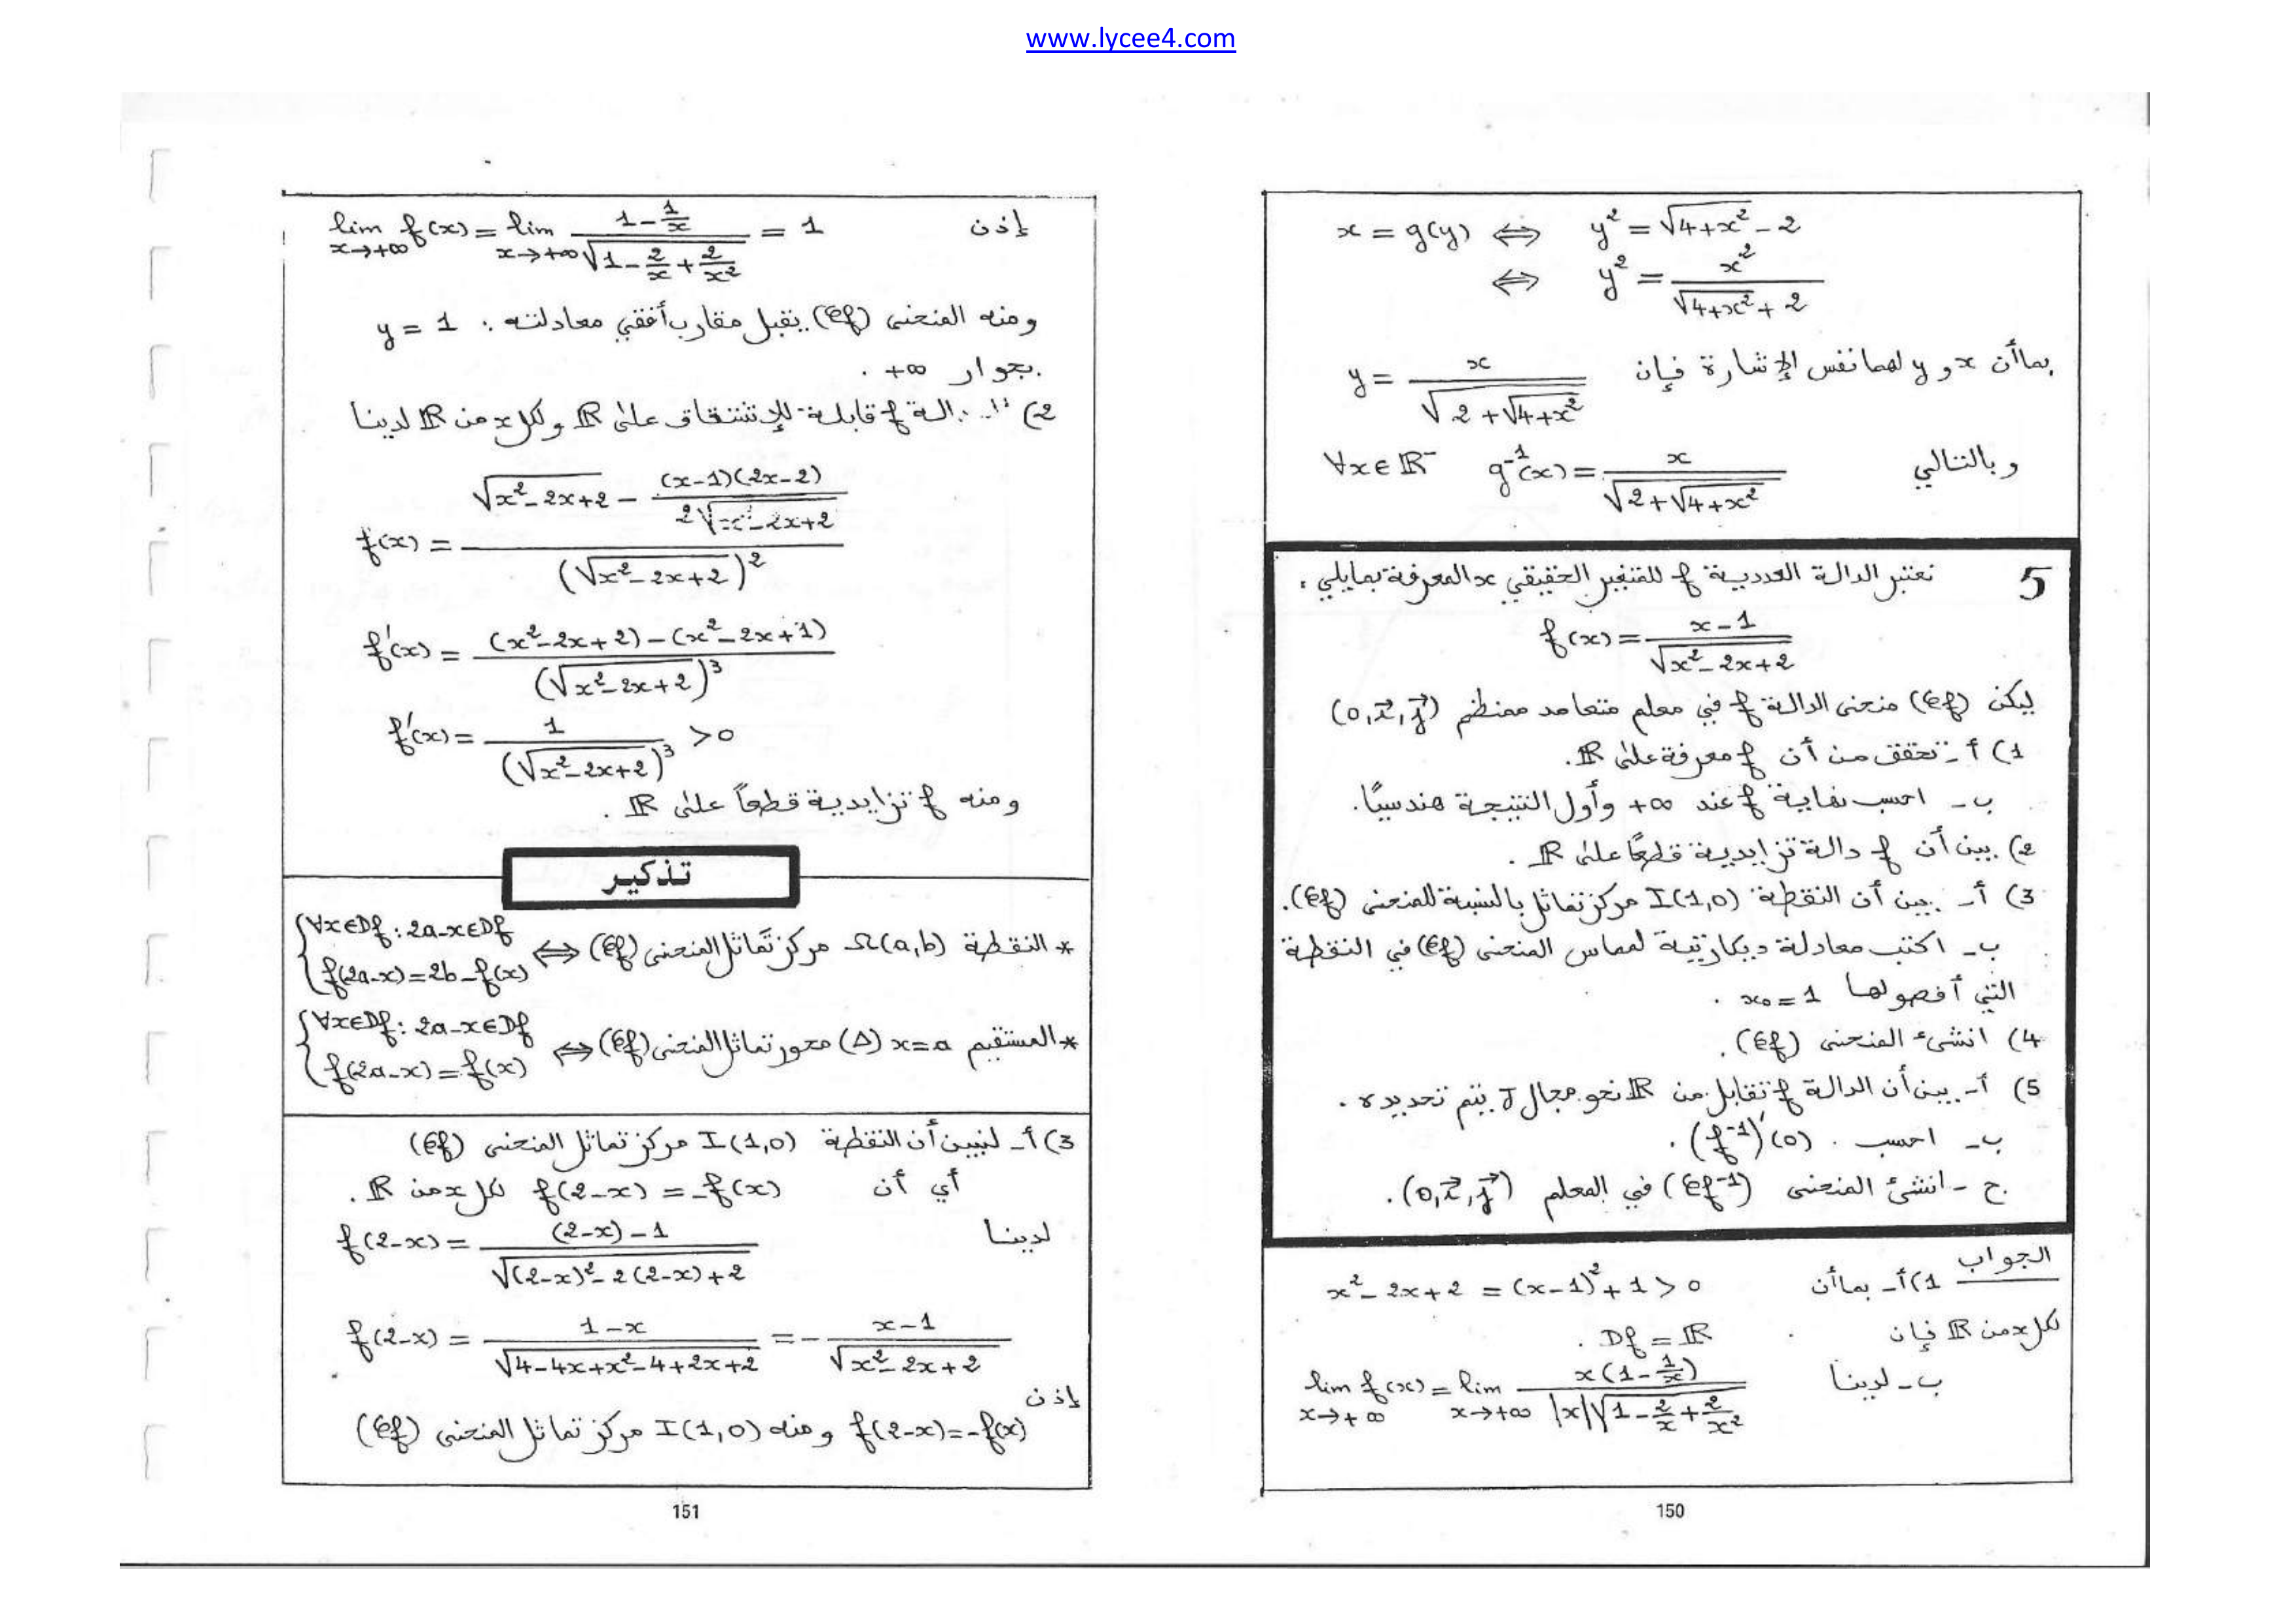 www.lycee4.com
x = g(y) ⇔ y² = √(4+x²) - 2
⇔ y² = x² / (√(4+x²) + 2)
بما أن x و y لهما نفس الإشارة فإن y = x / √(2+√(4+x²))
وبالتالي ∀x∈ℝ⁻ g⁻¹(x) = x / √(2+√(4+x²))
5 نعتبر الدالة العددية f للمتغير الحقيقي x المعرفة بمايلي :
f(x) = (x-1) / √(x²-2x+2)
ليكن (Cf) منحنى الدالة f في معلم متعامد ممنظم (o,i⃗,j⃗)
1) أ - تحقق من أن f معرفة على ℝ.
ب - احسب نهاية f عند +∞ وأول النتيجة هندسيًا.
2) بين أن f دالة تزايدية قطعًا على ℝ.
3) أ - بين أن النقطة I(1,0) مركز تماثل بالنسبة للمنحنى (Cf).
ب - اكتب معادلة ديكارتية لمماس المنحنى (Cf) في النقطة
التي أفصولها x₀ = 1 .
4) انشىء المنحنى (Cf).
5) أ - بين أن الدالة f تقابل من ℝ نحو مجال J يتم تحديده .
ب - احسب (f⁻¹)'(0) .
ج - انشئ المنحنى (Cf⁻¹) في المعلم (o,i⃗,j⃗).
الجواب
1) أ - بما أن x²-2x+2 = (x-1)²+1 > 0
لكل x من ℝ فإن Df = ℝ .
ب - لدينا lim f(x) = lim x(1-1/x) / |x|√(1-2/x+2/x²)
x→+∞ x→+∞
150
إذن lim f(x) = lim (1-1/x) / √(1-2/x+2/x²) = 1
x→+∞ x→+∞
ومنه المنحنى (Cf) يقبل مقارب أفقي معادلته : y = 1
بجوار +∞ .
2) الدالة f قابلة للإشتقاق على ℝ ولكل x من ℝ لدينا
f'(x) = (√(x²-2x+2) - (x-1)(2x-2) / 2√(x²-2x+2)) / (√(x²-2x+2))²
f'(x) = ((x²-2x+2)-(x²-2x+1)) / (√(x²-2x+2))³
f'(x) = 1 / (√(x²-2x+2))³ > 0
ومنه f تزايدية قطعاً على ℝ .
تذكير
* النقطة Ω(a,b) مركز تماثل المنحنى (Cf) ⇔ { ∀x∈Df : 2a-x∈Df
f(2a-x) = 2b-f(x)
* المستقيم x=a (Δ) محور تماثل المنحنى (Cf) ⇔ { ∀x∈Df : 2a-x∈Df
f(2a-x) = f(x)
3) أ - لنبين أن النقطة I(1,0) مركز تماثل المنحنى (Cf)
أي أن f(2-x) = -f(x) لكل x من ℝ .
لدينا f(2-x) = ((2-x)-1) / √((2-x)²-2(2-x)+2)
f(2-x) = (1-x) / √(4-4x+x²-4+2x+2) = - (x-1) / √(x²-2x+2)
إذن
f(2-x) = -f(x) ومنه I(1,0) مركز تماثل المنحنى (Cf)
151